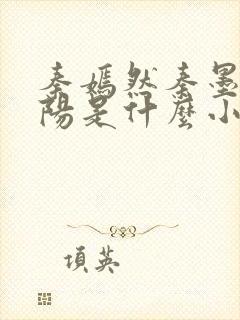 秦嫣然秦墨
陽是什麼小
項英